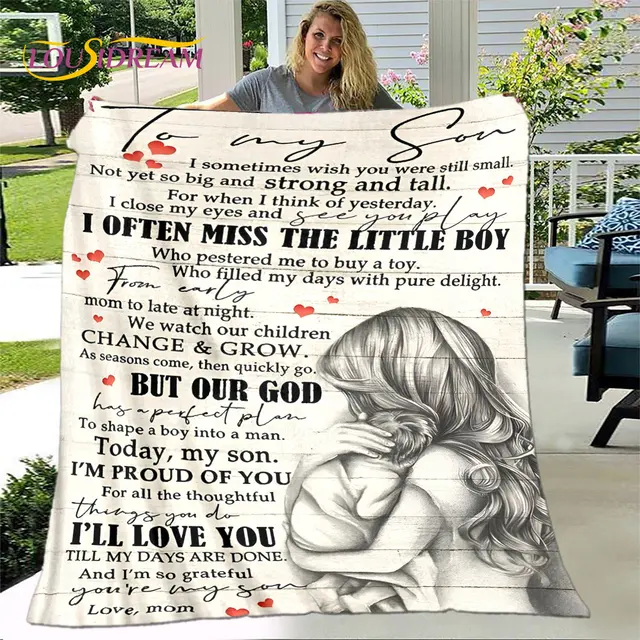 LOUSIDREAM
To my Son
I sometimes wish you were still small.
Not yet so big and strong and tall.
For when I think of yesterday.
I close my eyes and see you play
I OFTEN MISS THE LITTLE BOY
Who pestered me to buy a toy.
Who filled my days with pure delight.
From early
mom to late at night.
We watch our children
CHANGE & GROW.
As seasons come, then quickly go.
BUT OUR GOD
has a perfect plan
To shape a boy into a man.
Today, my son.
I'M PROUD OF YOU
For all the thoughtful
things you do
I'LL LOVE YOU
TILL MY DAYS ARE DONE.
And I'm so grateful
you're my son
Love, mom